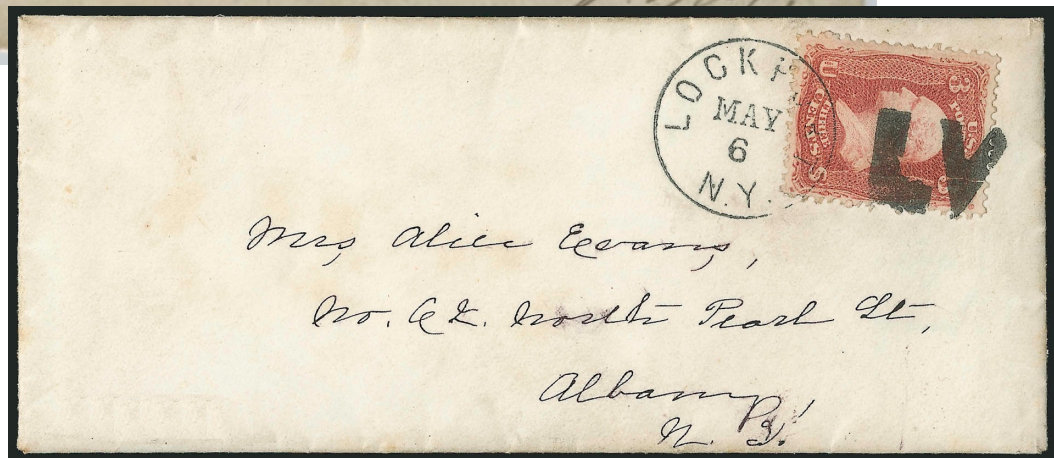 LOCKP
MAY
6
N.Y.
U.S. POS
3
U
THREE CENTS
LV
Mrs Alice Evans,
No. North Pearl St,
Albany,
N. Y.